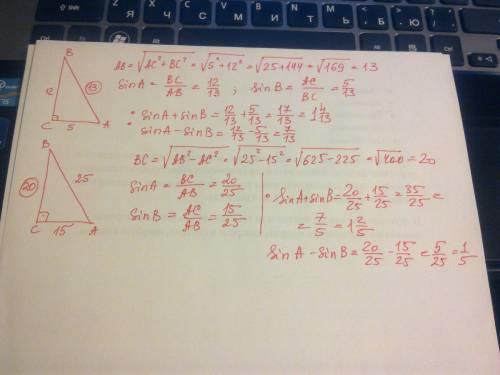 B
AB = √AC²+BC² = √5²+12² = √25+144 = √169 = 13
12
13
SinA = BC/AB = 12/13 ; SinB = AC/BC = 5/13
C 5 A
• SinA + SinB = 12/13 + 5/13 = 17/13 = 1 4/13
• SinA - SinB = 12/13 - 5/13 = 7/13
B
BC = √AB²-AC² = √25²-15² = √625-225 = √400 = 20
20
25
SinA = BC/AB = 20/25
SinB = AC/AB = 15/25
C 15 A
• SinA + SinB = 20/25 + 15/25 = 35/25 =
= 7/5 = 1 2/5
SinA - SinB = 20/25 - 15/25 = 5/25 = 1/5